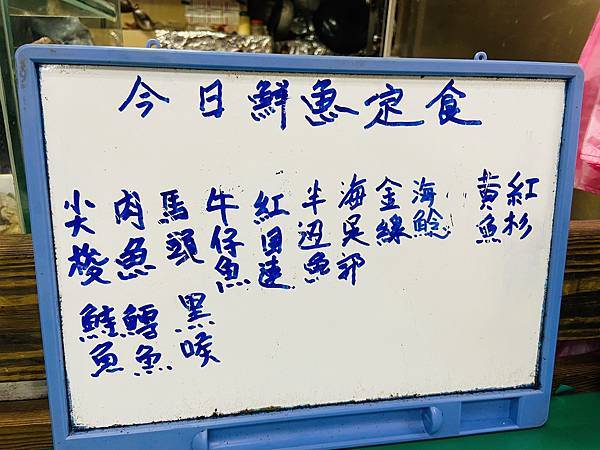 今日鮮魚定食
紅杉
黃魚
海鯰
金線
海吳郭
半边魚
紅目連
牛仔魚
馬頭
肉魚
尖梭
黑喉
鱈魚
鮭魚